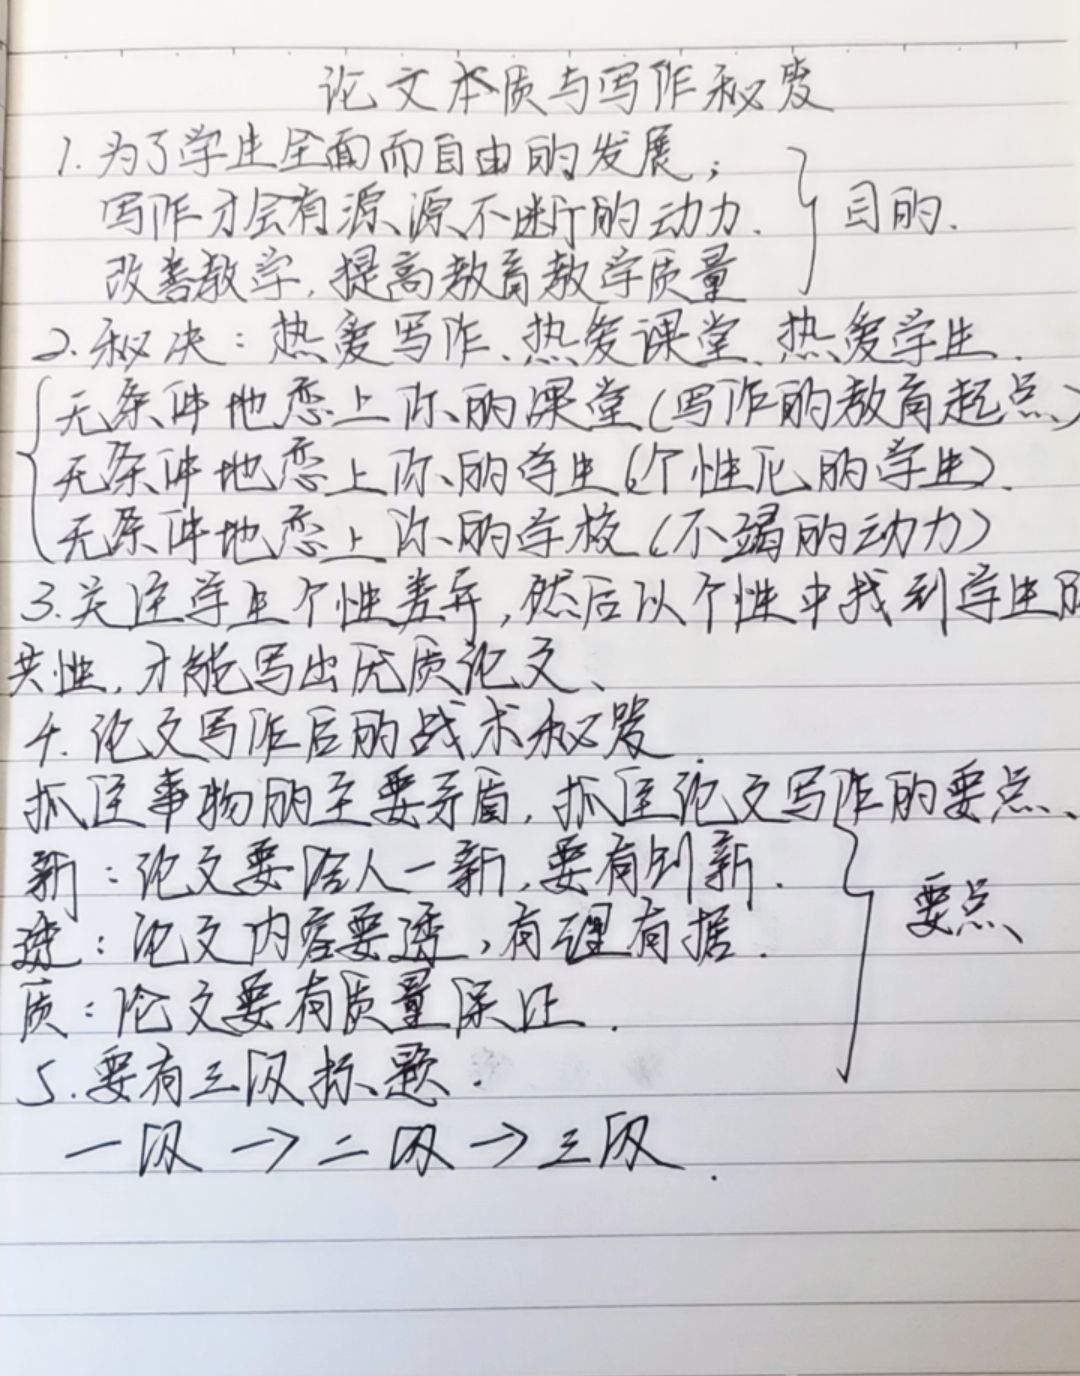 论文本质与写作秘笈
1.为了学生全面而自由的发展；
写作才会有源源不断的动力.
改善教学,提高教育教学质量
目的.
2.秘决：热爱写作、热爱课堂、热爱学生.
无条件地恋上你的课堂(写作的教育起点)
无条件地恋上你的学生(个性化的学生).
无条件地恋上你的学校(不竭的动力)
3.关注学生个性差异,然后从个性中找到学生的
共性,才能写出优质论文、
4.论文写作后的战术秘笈.
抓住事物的主要矛盾,抓住论文写作的要点、
新：论文要给人一新,要有创新.
透：论文内容要透,有理有据.
质：论文要有质量保证.
要点
5.要有三级标题.
一级→二级→三级.